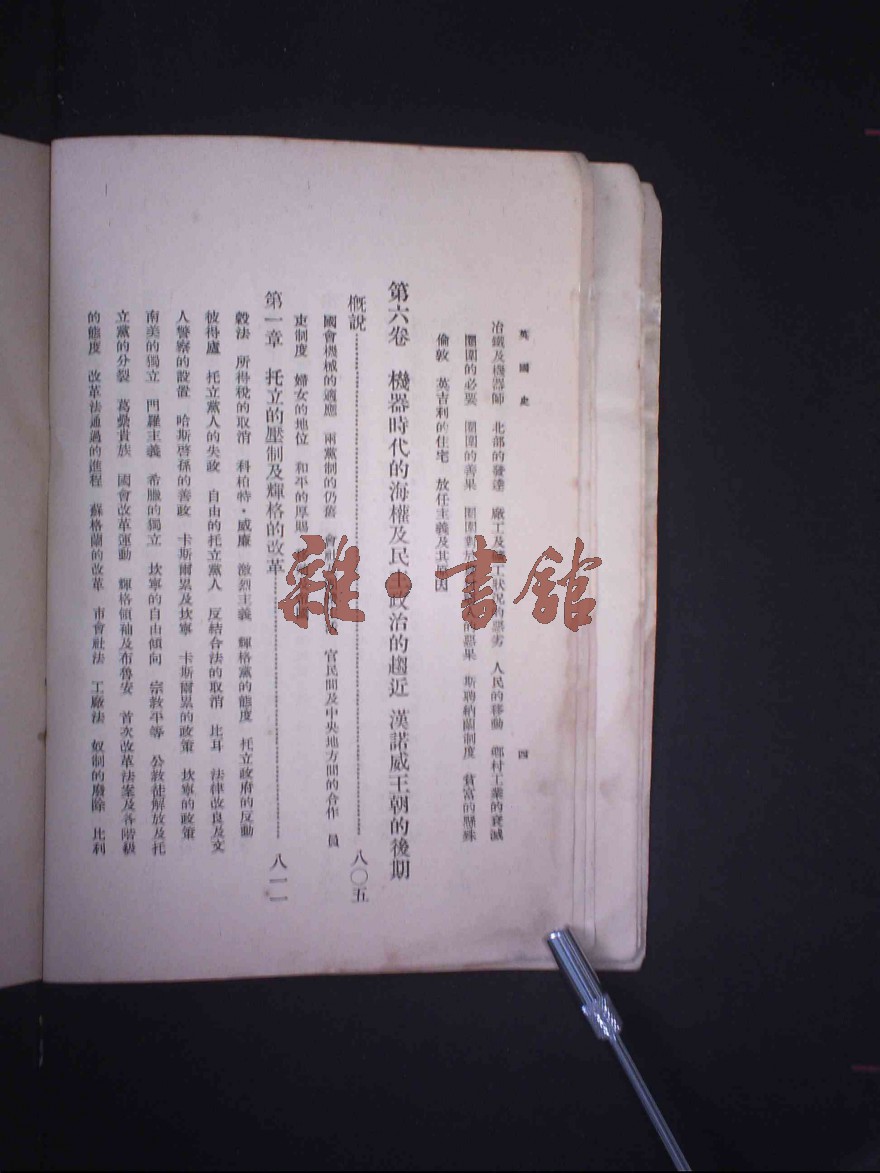 英國史
四
冶鐵及機器師 北部的發達 廠工及 工狀況 惡劣 人民的移動 鄉村工業的衰滅
圈圍的必要 圈圍的善果 圈圍 的惡果 斯聘納蘭制度 貧富的懸殊
倫敦 英吉利的住宅 放任主義及其原因
第六卷 機器時代的海權及民主政治的趨近 漢諾威王朝的後期
概說 八〇五
國會機械的適應 兩黨制的仍舊 會社 官民間及中央地方間的合作 員
吏制度 婦女的地位 和平的厚賜
第一章 托立的壓制及輝格的改革 八一一
穀法 所得稅的取消 科柏特·威廉 激烈主義 輝格黨的態度 托立政府的反動
彼得盧 托立黨人的失政 自由的托立黨人 反結合法的取消 比耳 法律改良及文
人警察的設置 哈斯啓孫的善政 卡斯爾累及坎寧 卡斯爾累的政策 坎寧的政策
南美的獨立 門羅主義 希臘的獨立 坎寧的自由傾向 宗教平等 公教徒解放及托
立黨的分裂 葛欒貴族 國會改革運動 輝格領袖及布魯安 首次改革法案及各階級
的態度 改革法通過的進程 蘇格蘭的改革 市會社法 工廠法 奴制的廢除 比利
雜·書館